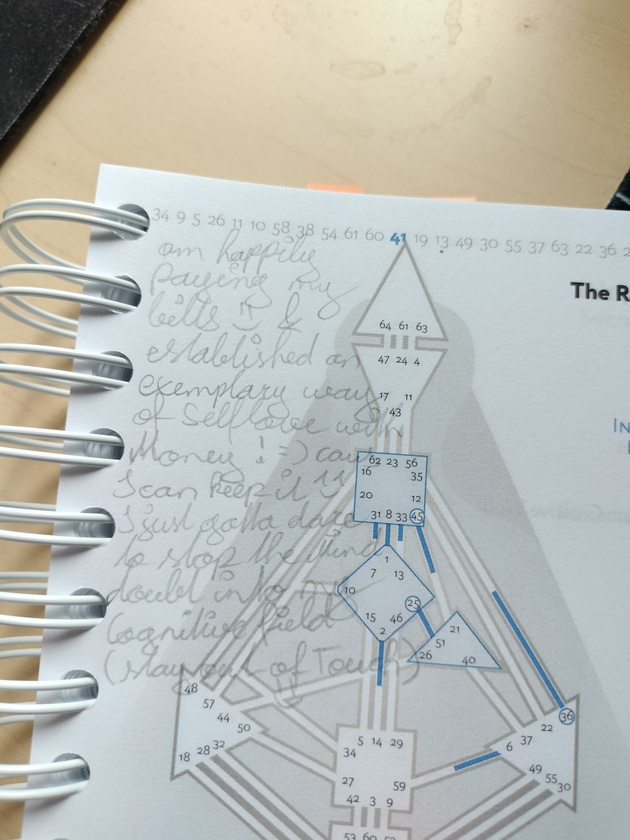 34 9 5 26 11 10 58 38 54 61 60 41 19 13 49 30 55 37 63 22 36 2
am happily
paying my
bills :) &
established an
exemplary way
of Self love with
Money ! =) cau
I can keep it
I just gotta dare
to stop the
doubt into m
Cognitive field
(stay out of Touch)
The R
IN
64 61 63
47 24 4
17 11
43
62 23 56
16 35
20 12
31 8 33 45
1
7 13
10
25
15 46
2
21
51
26 40
48
57
44
50
18 28 32
36
22
37
6
49 55 30
5 14 29
34
27 59
42 3 9
53 60 52